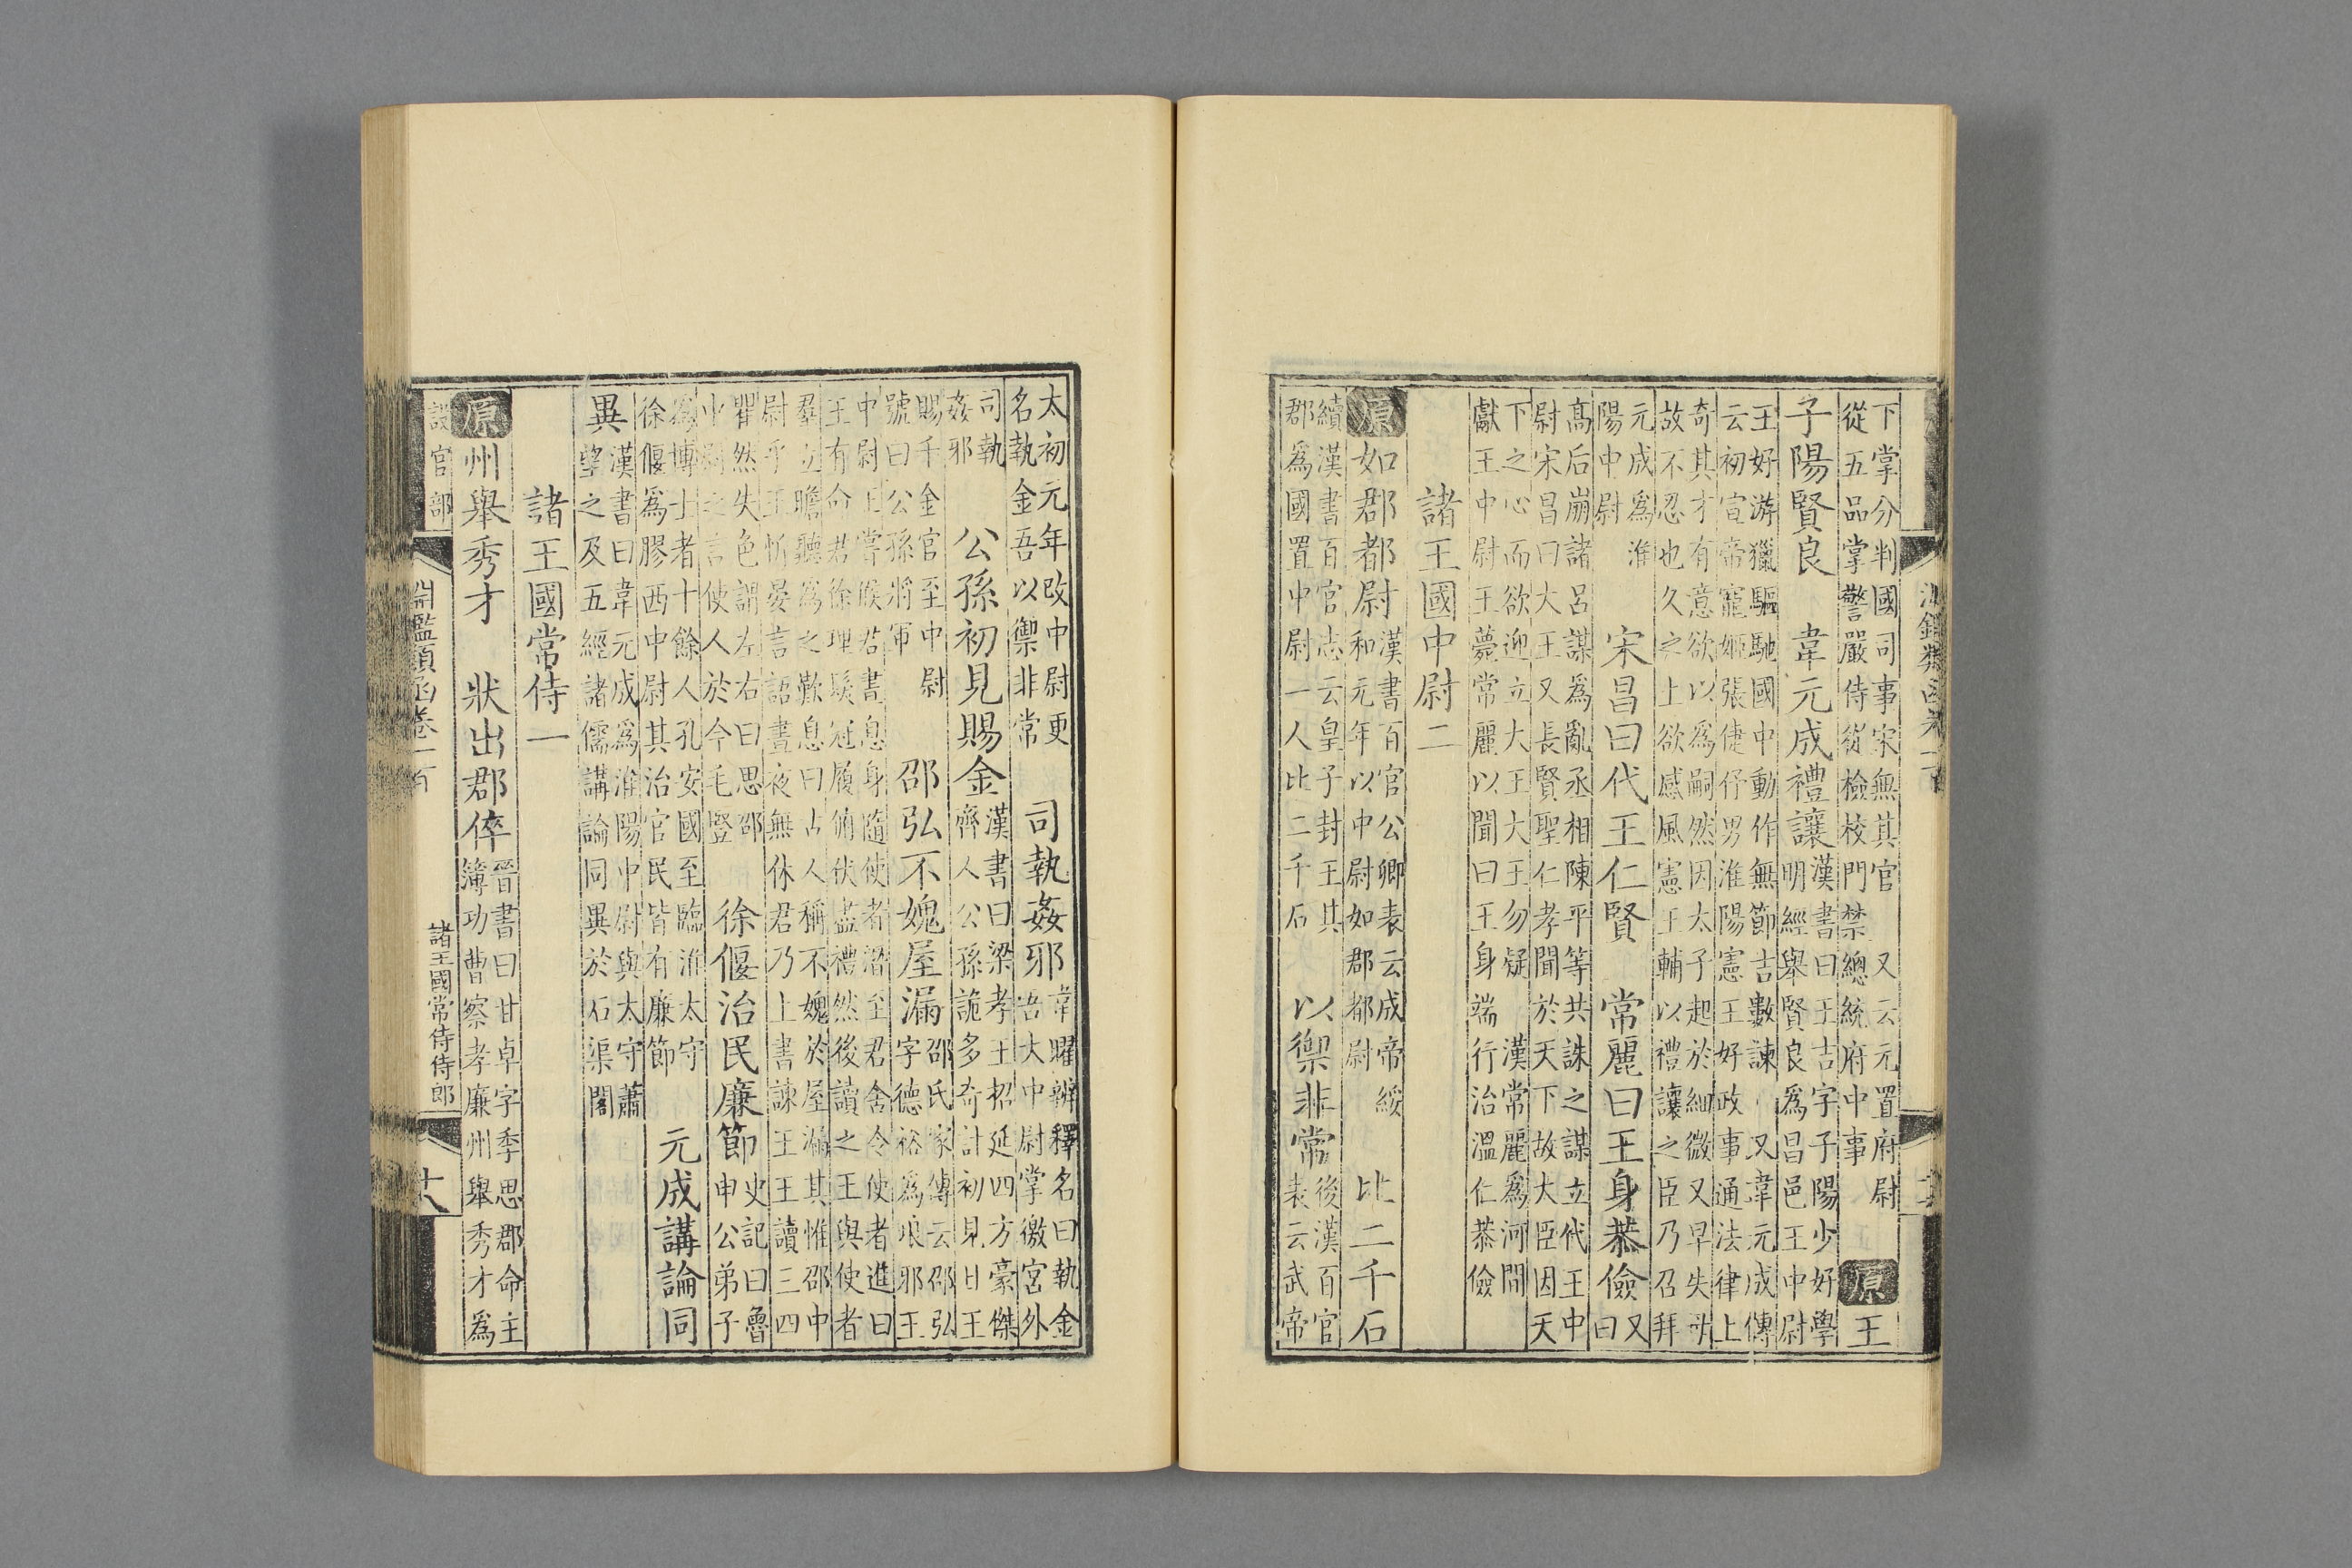 下掌分判國司事宋無其官　又云元置府尉
從五品掌警嚴侍從檢校門禁總統府中事
原王
子陽賢良　韋元成禮讓
漢書曰王吉字子陽少好學
明經舉賢良爲昌邑王中尉
王好游獵驅馳國中動作無節吉數諫　又韋元成傳
云初宣帝寵姬張倢伃男淮陽憲王好政事通法律上
奇其才有意欲以爲嗣然因太子起於細微又早失母
故不忍也久之上欲感風憲王輔以禮讓之臣乃召拜
元成爲淮
陽中尉
宋昌曰代王仁賢　常麗曰王身恭儉
又
曰
高后崩諸呂謀爲亂丞相陳平等共誅之謀立代王中
尉宋昌曰大王又長賢聖仁孝聞於天下故大臣因天
下之心而欲迎立大王大王勿疑　漢常麗爲河間
獻王中尉王薨常麗以聞曰王身端行治溫仁恭儉
諸王國中尉二
原如郡都尉
漢書百官公卿表云成帝綏
和元年以中尉如郡都尉
比二千石
續漢書百官志云皇子封王其
郡爲國置中尉一人比二千石
以禦非常
後漢百官
表云武帝
太初元年改中尉更
名執金吾以禦非常
司執姦邪
韋曜辨釋名曰執金
吾大中尉掌徼宮外
司執
姦邪
公孫初見賜金
漢書曰梁孝王招延四方豪傑
齊人公孫詭多奇計初見日王
賜千金官至中尉
號曰公孫將軍
邵弘不媿屋漏
邵氏家傳云邵弘
字德裕爲琅邪王
中尉王嘗候君書息身隨使者潛至君舍令使者進曰
王有命君徐理髮冠履俯伏盡禮然後讀之王與使者
羣立瞻聽爲之歎息曰古人稱不媿於屋漏其惟邵中
尉乎王忻晏言語晝夜無休君乃上書諫王王讀三四
瞿然失色謂左右曰思邵
中尉之言使人於今毛豎
徐偃治民廉節
史記曰魯
申公弟子
爲博士者十餘人孔安國至臨淮太守
徐偃爲膠西中尉其治官民皆有廉節
元成講論同
異
漢書曰韋元成爲淮陽中尉與太守蕭
望之及五經諸儒講論同異於石渠閣
諸王國常侍一
原州舉秀才　狀出郡倅
晉書曰甘卓字季思郡命主
簿功曹察孝廉州舉秀才爲
設官部
淵鑑類函卷一百
諸王國常侍侍郎
十八